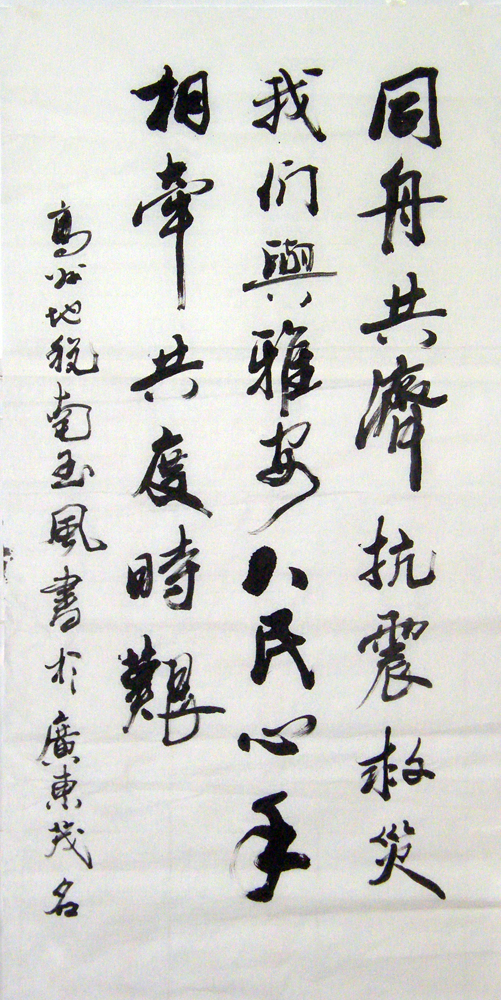 同舟共濟抗震救災
我们與雅安人民心手
相牽共度時艱
高州地税南玉風書於廣東茂名